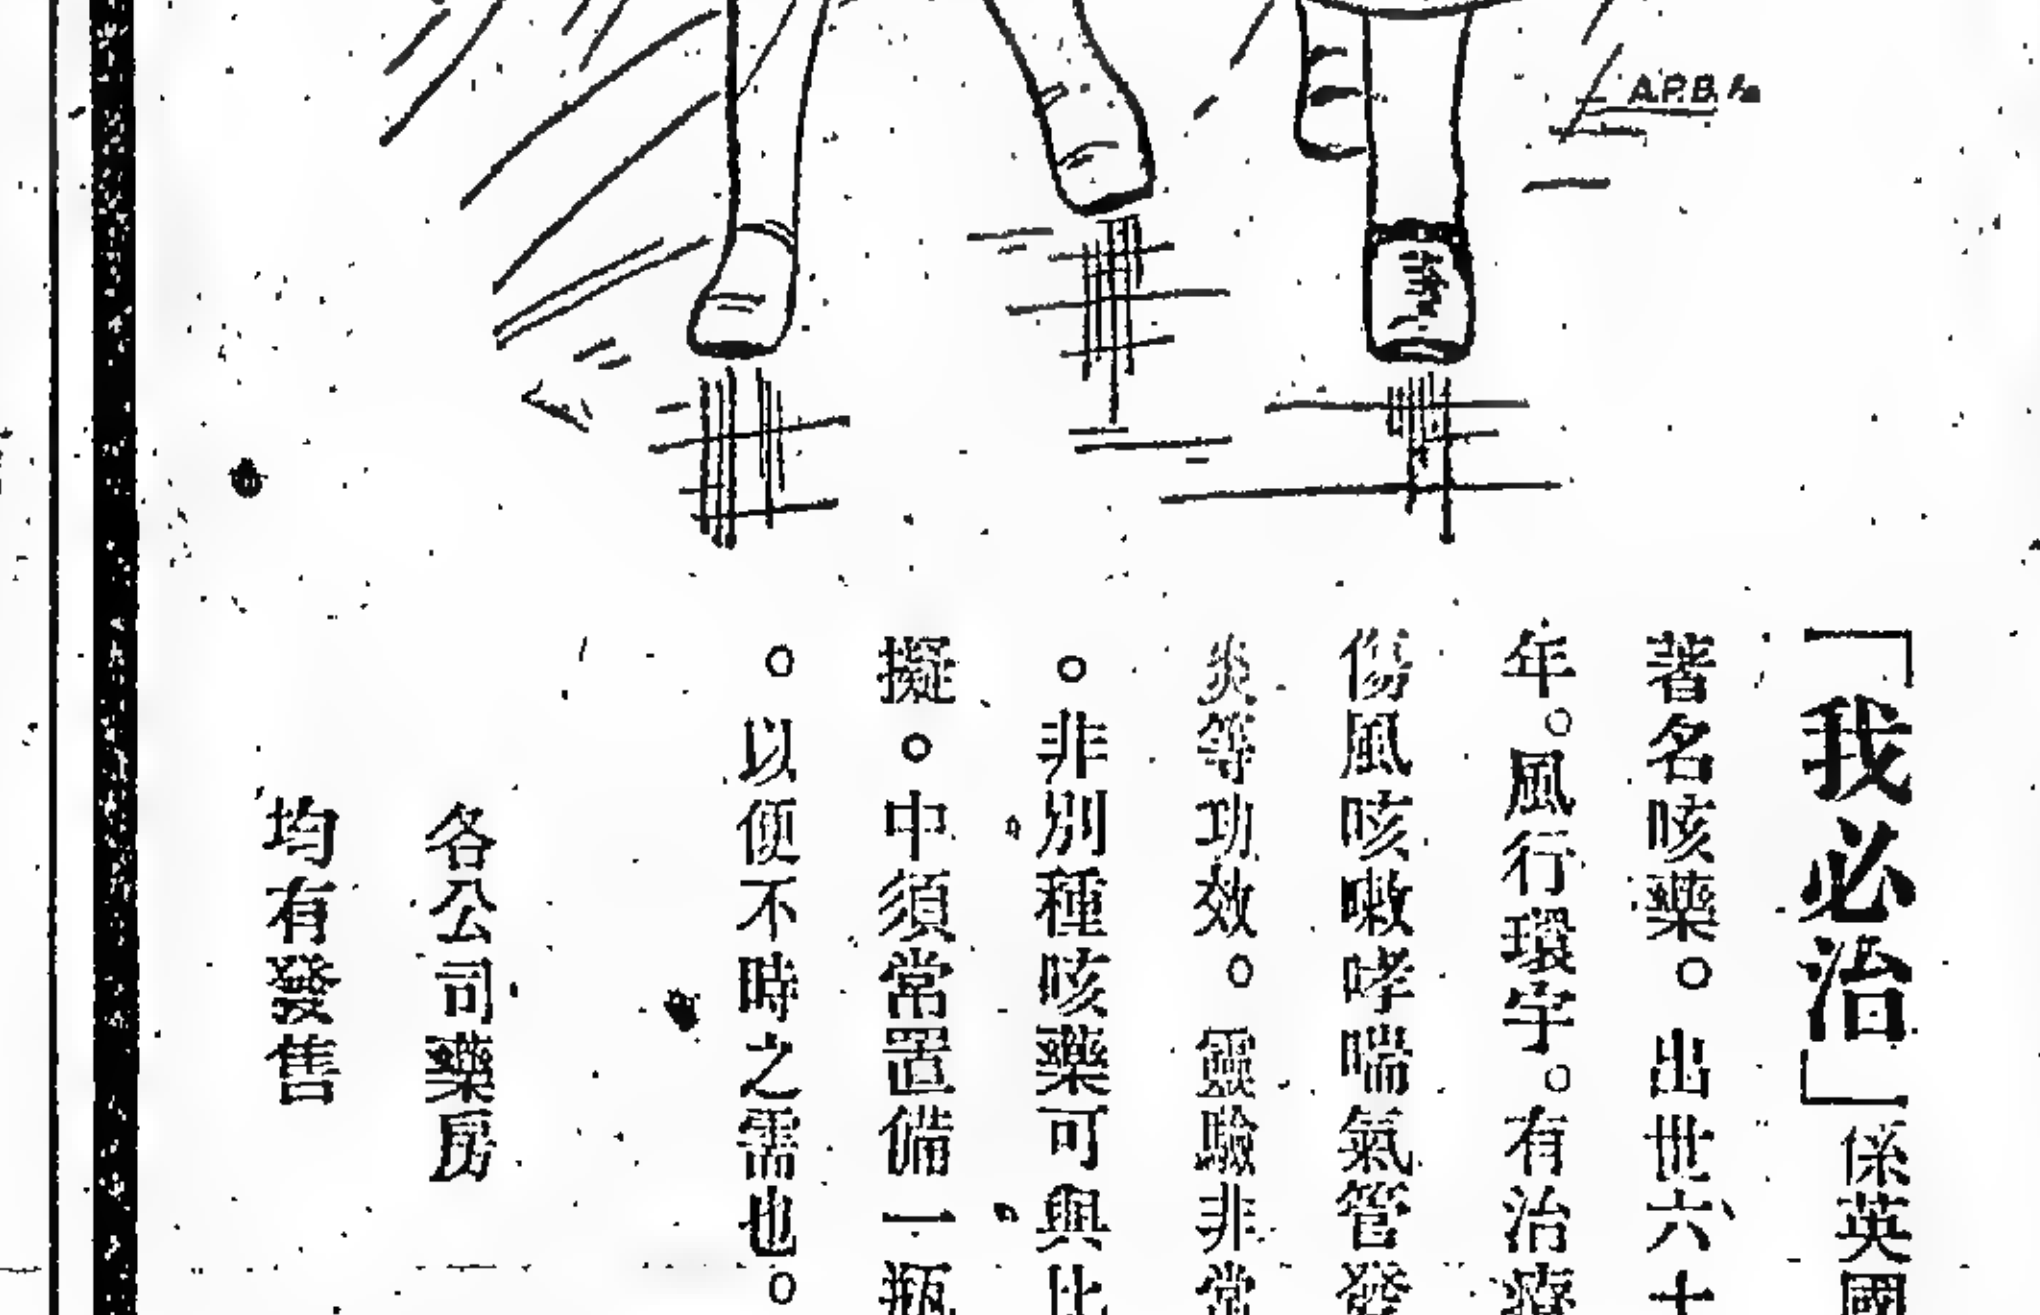 「我必治」係英國
著名咳藥。出世六十
年。風行環宇。有治療
傷風咳嗽哮喘氣管發
炎等功效。靈驗非常
。非別種咳藥可與比
擬。中須常置備一瓶
。以便不時之需也。
各公司藥房
均有發售
A.P.B.